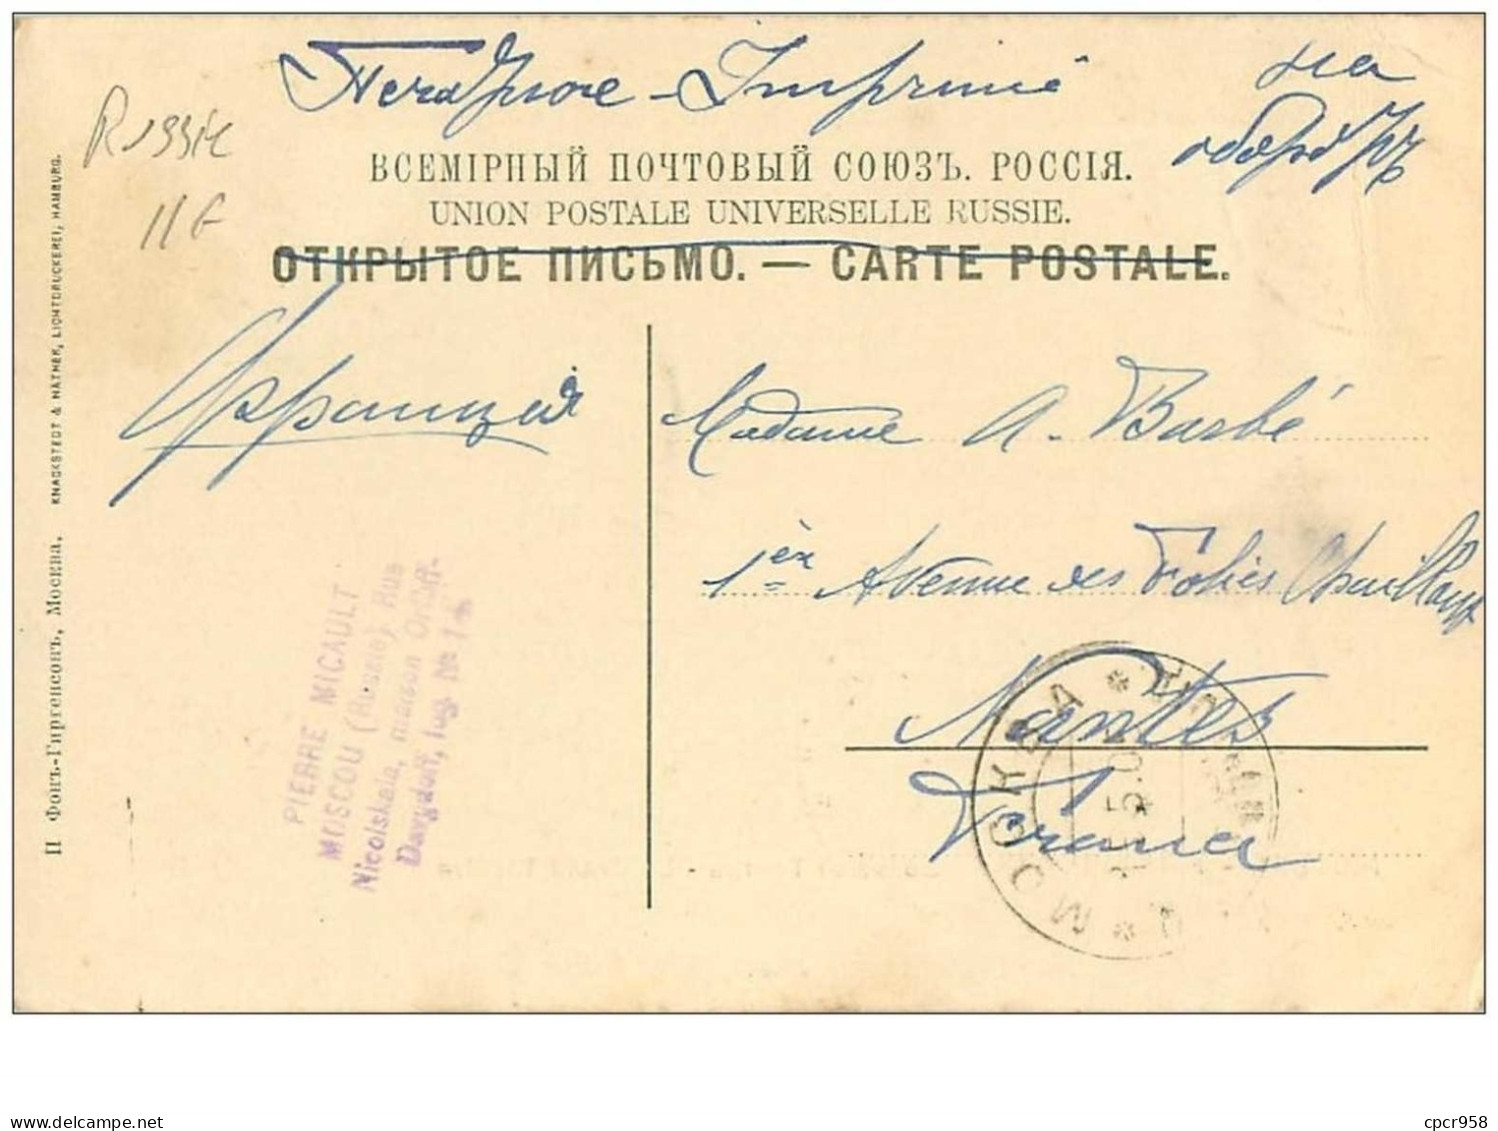 Imprimé
на
R 1331
ВСЕМІРНЫЙ ПОЧТОВЫЙ СОЮЗЪ. РОССІЯ.
UNION POSTALE UNIVERSELLE RUSSIE.
ОТКРЫТОЕ ПИСЬМО. — CARTE POSTALE.
Франция
Madame A. Barbé
1ère Avenue des Folies Chailloux
Nantes
France
МОСКВА
PIERRE MICAULT
MOSCOU (Russie) Rue
Nicolskaia, maison Orloff-
Davydoff, log. № 14
П Фонъ-Гиргенсонъ, Москва. KNACKSTEDT & NÄTHER, LICHTDRUCKEREI, HAMBURG.
cpcr958
delcampe.net